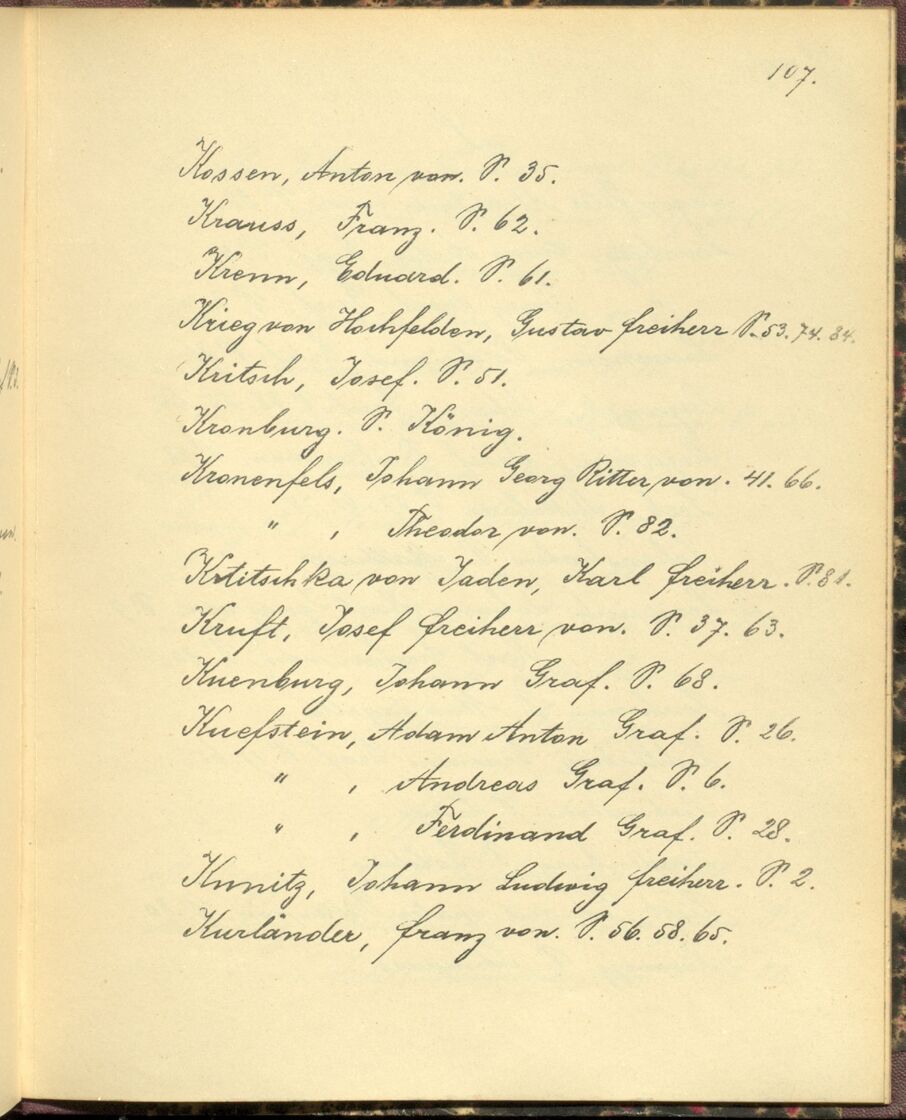 107.
Kossen, Anton von. S. 35.
Krauss, Franz. S. 62.
Krenn, Eduard. S. 61.
Krieg von Hochfelden, Gustav Freiherr S. 53. 74. 84.
Kritsch, Josef. S. 51.
Kronburg. S. König.
Kronenfels, Johann Georg Ritter von. 41. 66.
" , Theodor von. S. 82.
Krtitschka von Jaden, Karl Freiherr. S. 81.
Kruft, Josef Freiherr von. S. 37. 63.
Kuenburg, Johann Graf. S. 68.
Kuefstein, Adam Anton Graf. S. 26.
" , Andreas Graf. S. 6.
" , Ferdinand Graf. S. 28.
Kunitz, Johann Ludwig Freiherr. S. 2.
Kurländer, Franz von. S. 56. 58. 65.